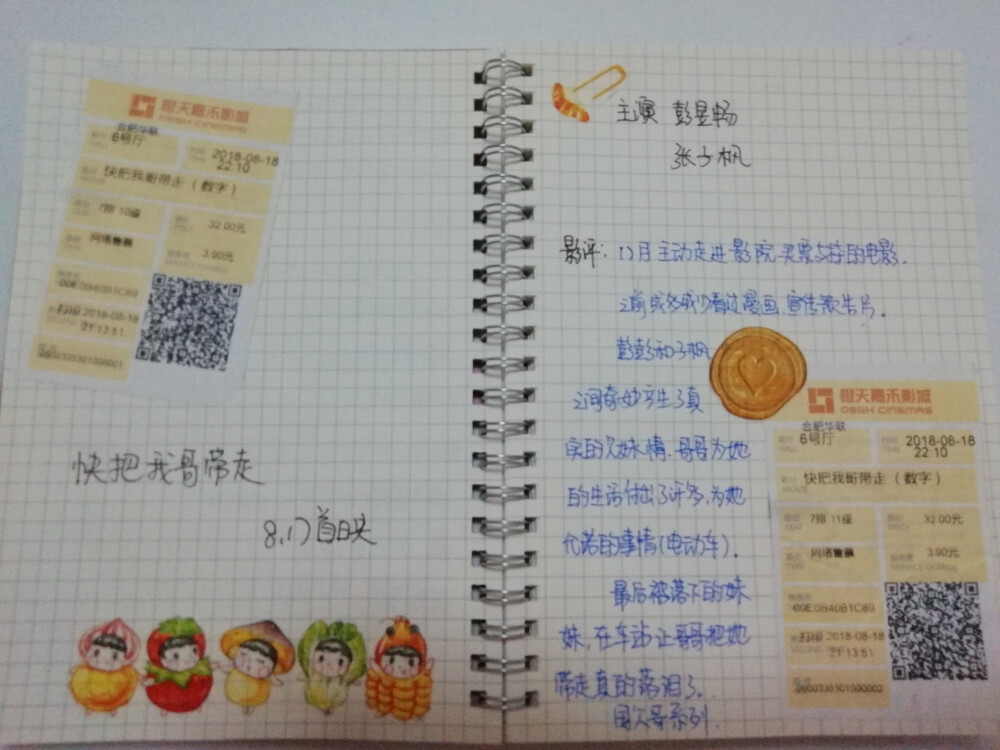 橙天嘉禾影城
OSGH CINEMAS
合肥华联
6号厅
2018-08-18
22:10
快把我哥带走（数字）
7排 10座
32.00元
3.90元
21:13:51
快把我哥带走
8.17首日映
主演 彭昱畅
张子枫
影评:17月主动走进影院买票支持的电影.
彭彭和子枫
之间奇妙产生了真
实的兄妹情.哥哥为她
的生活付出了许多,为她
代诺的事情(电动车).
最后被落下的妹
妹,在车站让哥哥把她
带走真的落泪了.
国欠哥系列.
橙天嘉禾影城
OSGH CINEMAS
合肥华联
6号厅
2018-08-18
22:10
快把我哥带走（数字）
7排 11座
32.00元
3.90元
SERVICE CHARGE
00E0B40B1C89
打印 2018-08-18
21:13:51